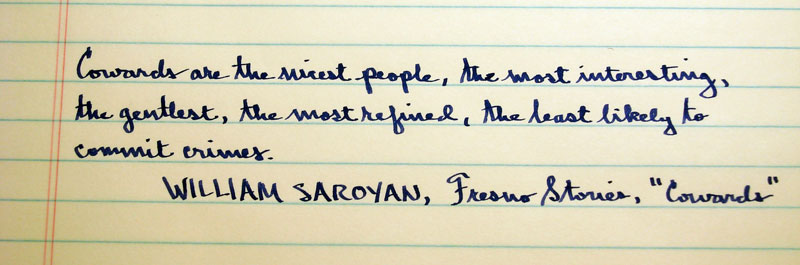 Cowards are the nicest people, the most interesting,
the gentlest, the most refined, the least likely to
commit crimes.
WILLIAM SAROYAN, Fresno Stories, "Cowards"